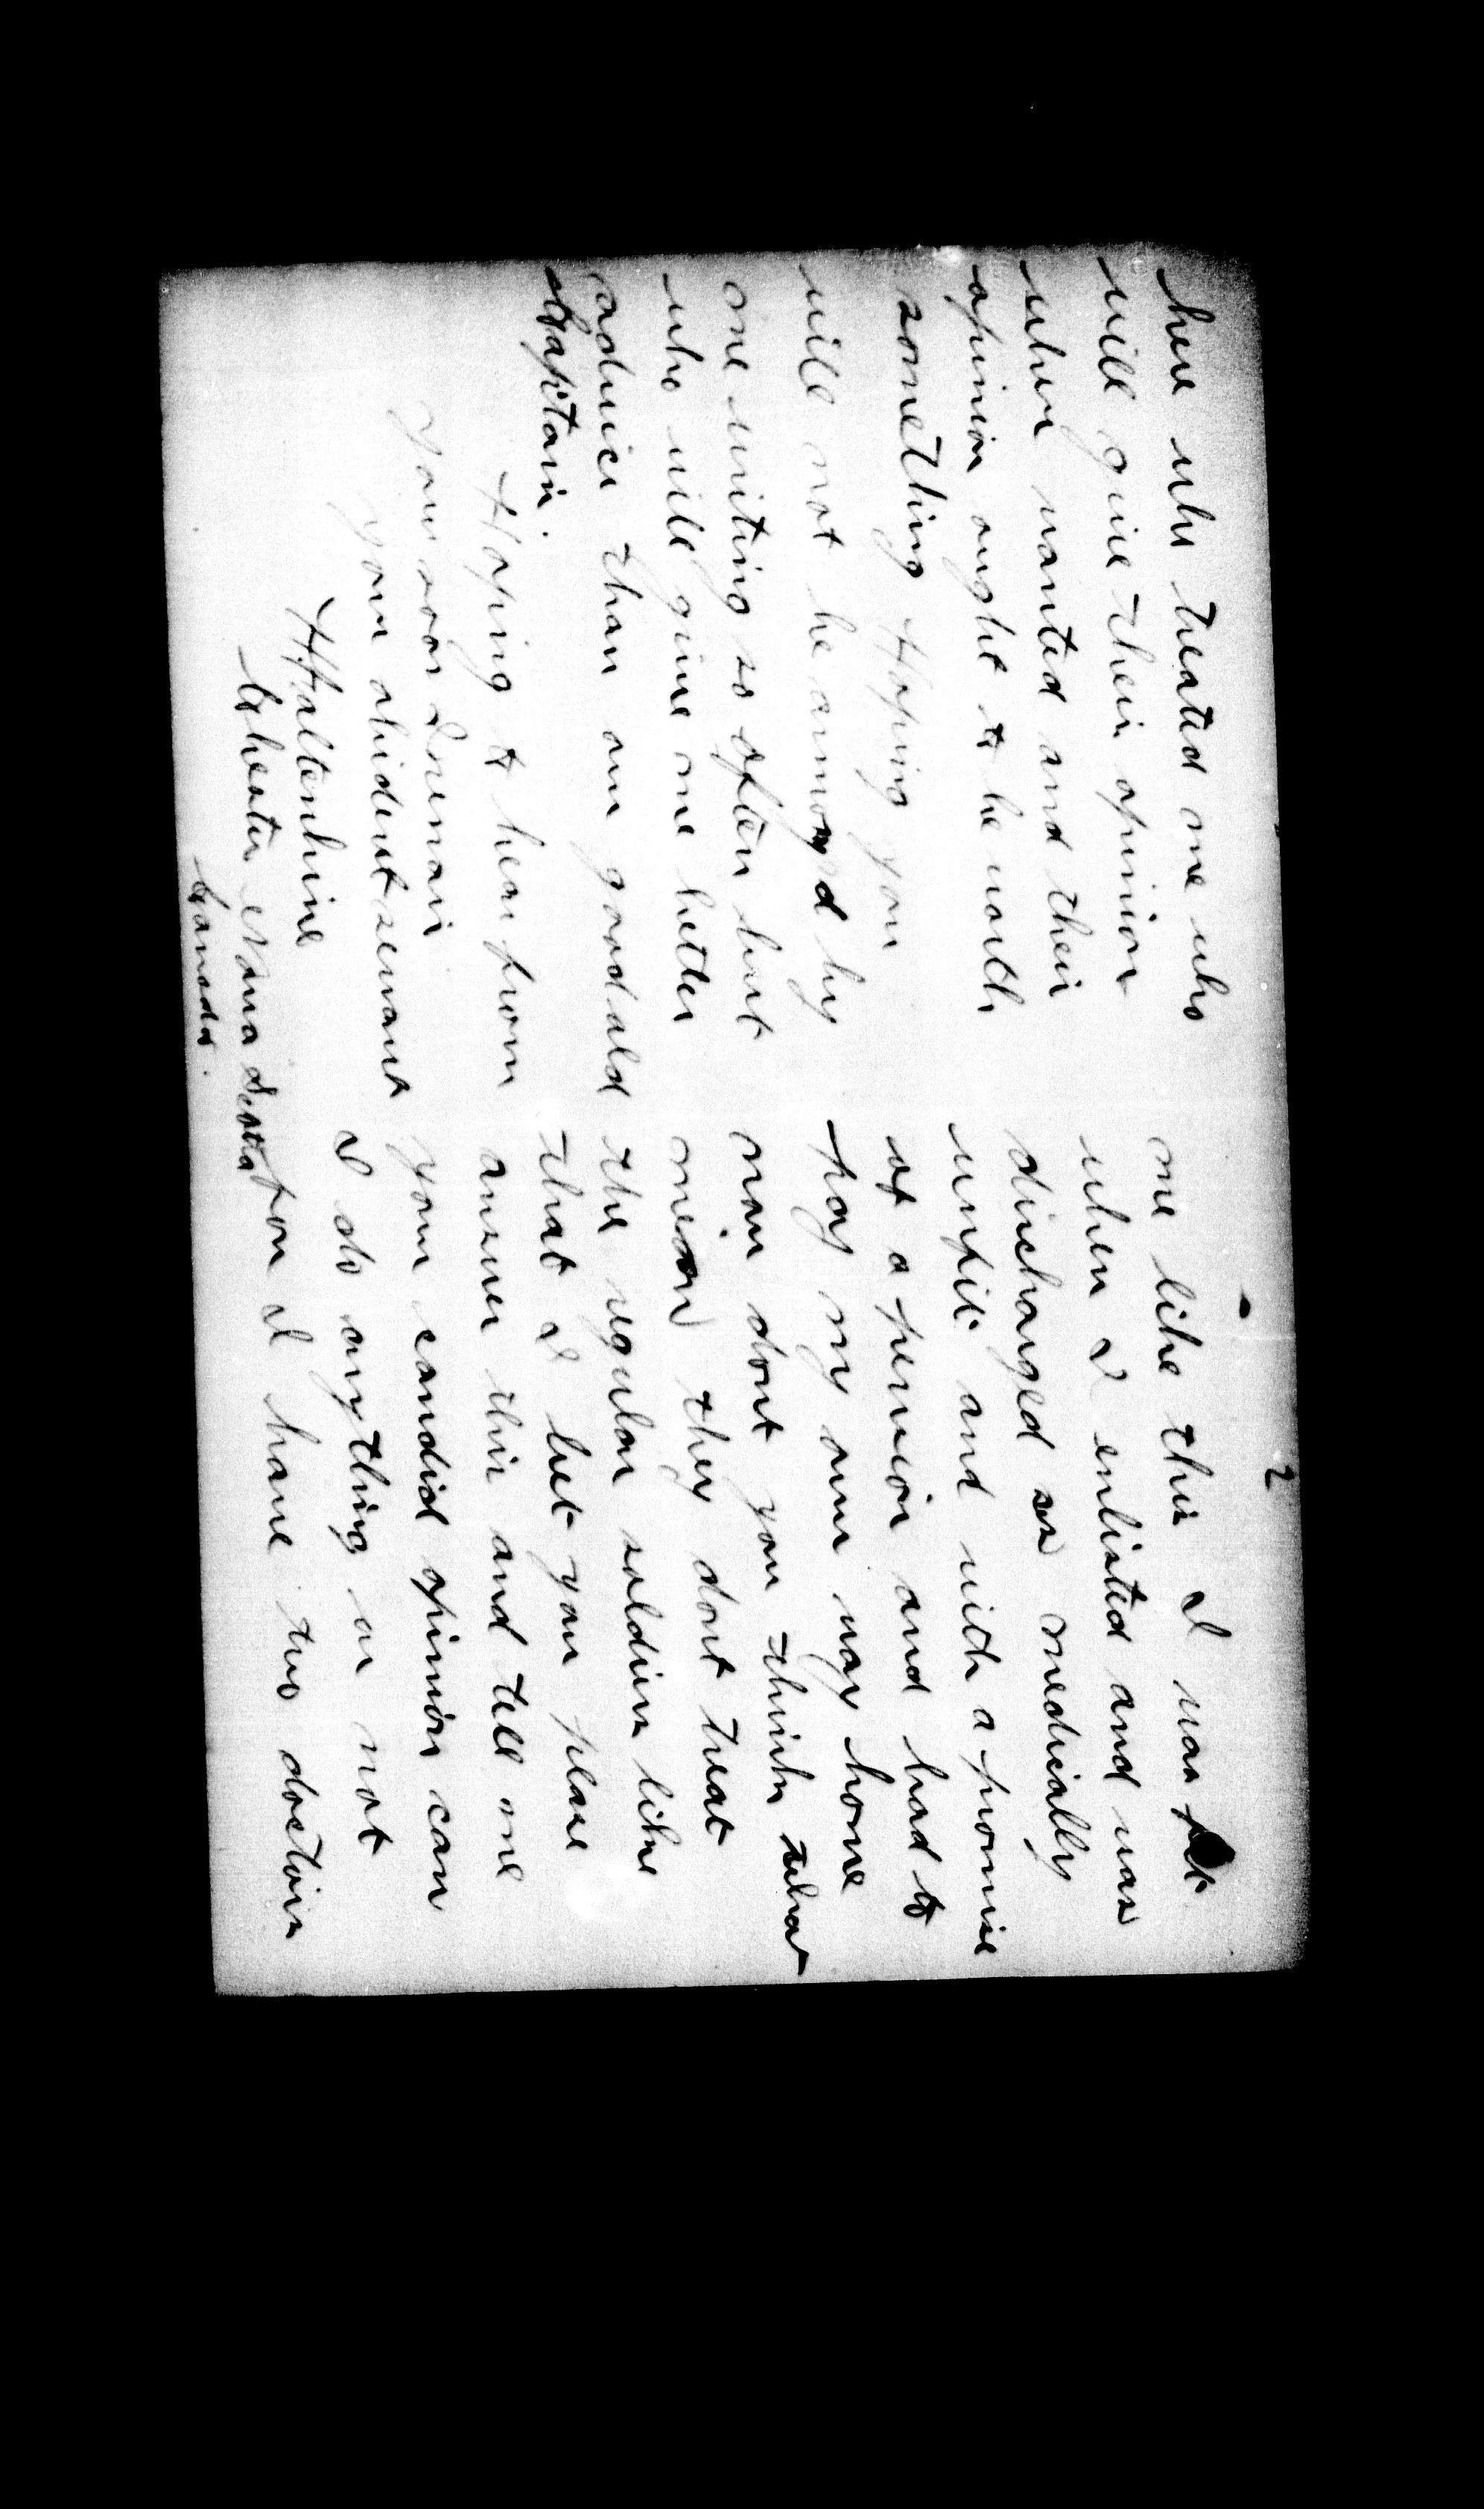 2
me like this I was fit
when I enlisted and was
discharged as medically
unfit and with a promise
of a pension and had to
pay my own way home
now dont you think what
mean they dont treat
the regular soldiers like
that I bet you please
answer this and tell me
your candid opinion can
I do anything or not
for I have two doctors
here who treated me who
will give their opinion
when wanted and their
opinion ought to be worth
something Hoping you
will not be annoyd by
me writing so often but
who will give me better
advice than our good old
Captain.
Hoping to hear from
you soon I remain
your obident servant
Chester Nova Scotia
Canada.